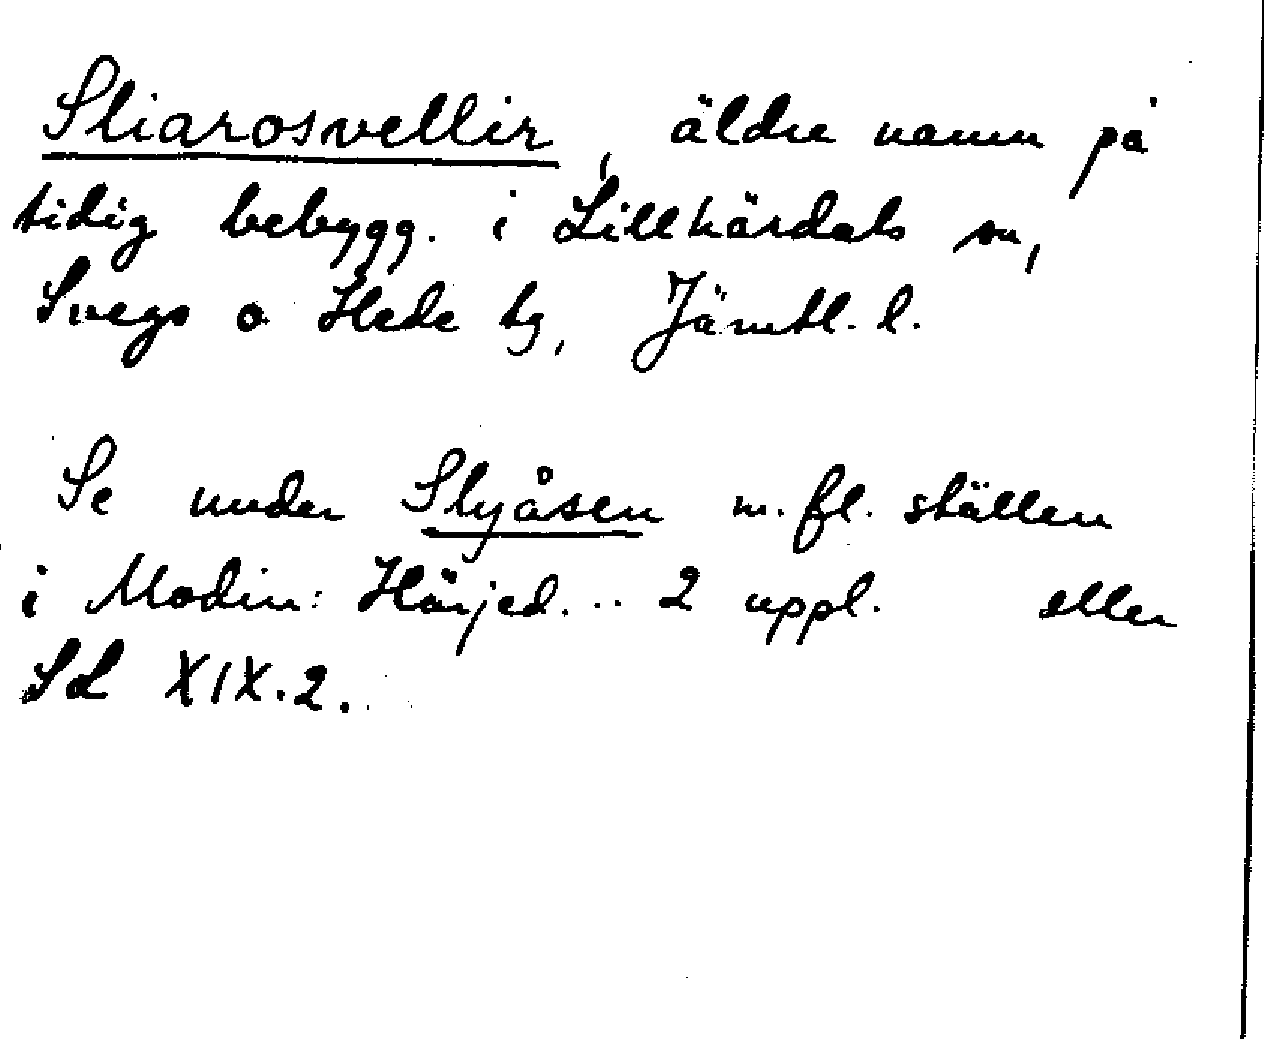 Sliarosvellir, äldre namn på
tidig bebygg. i Lillhärdals sn,
Svegs o Hede tg, Jämtl. l.
Se under Slyåsen m. fl. ställen
i Modin: Härjed... 2 uppl. eller
SL XIX.2.